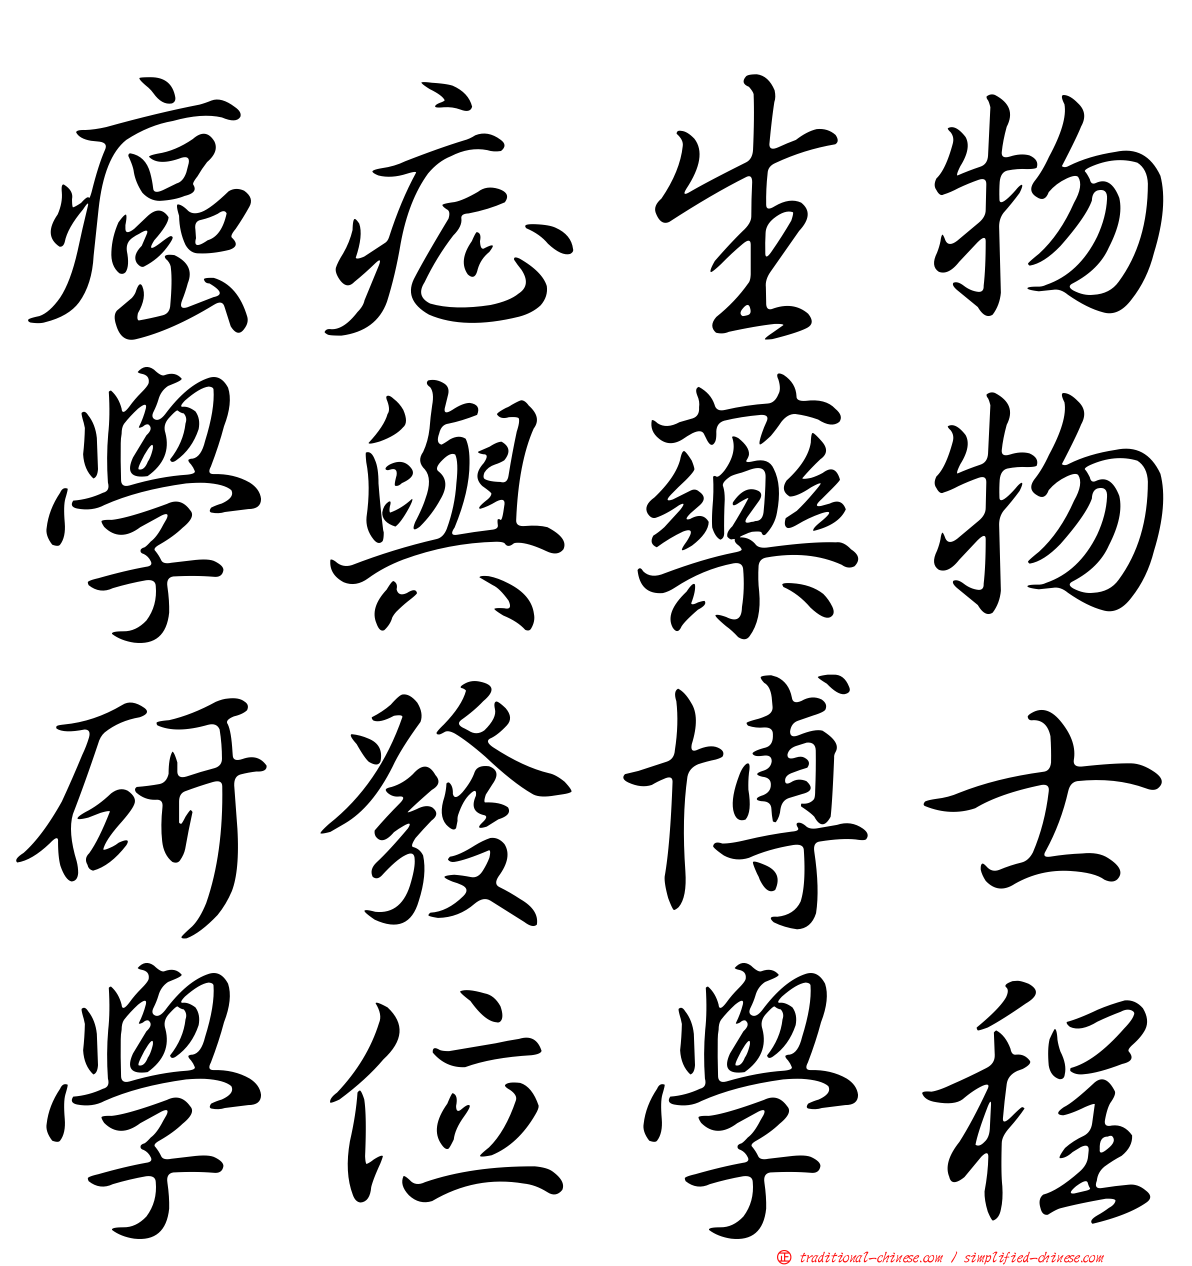 癌症生物
學與藥物
研發博士
學位學程
正 traditional-chinese.com / simplified-chinese.com